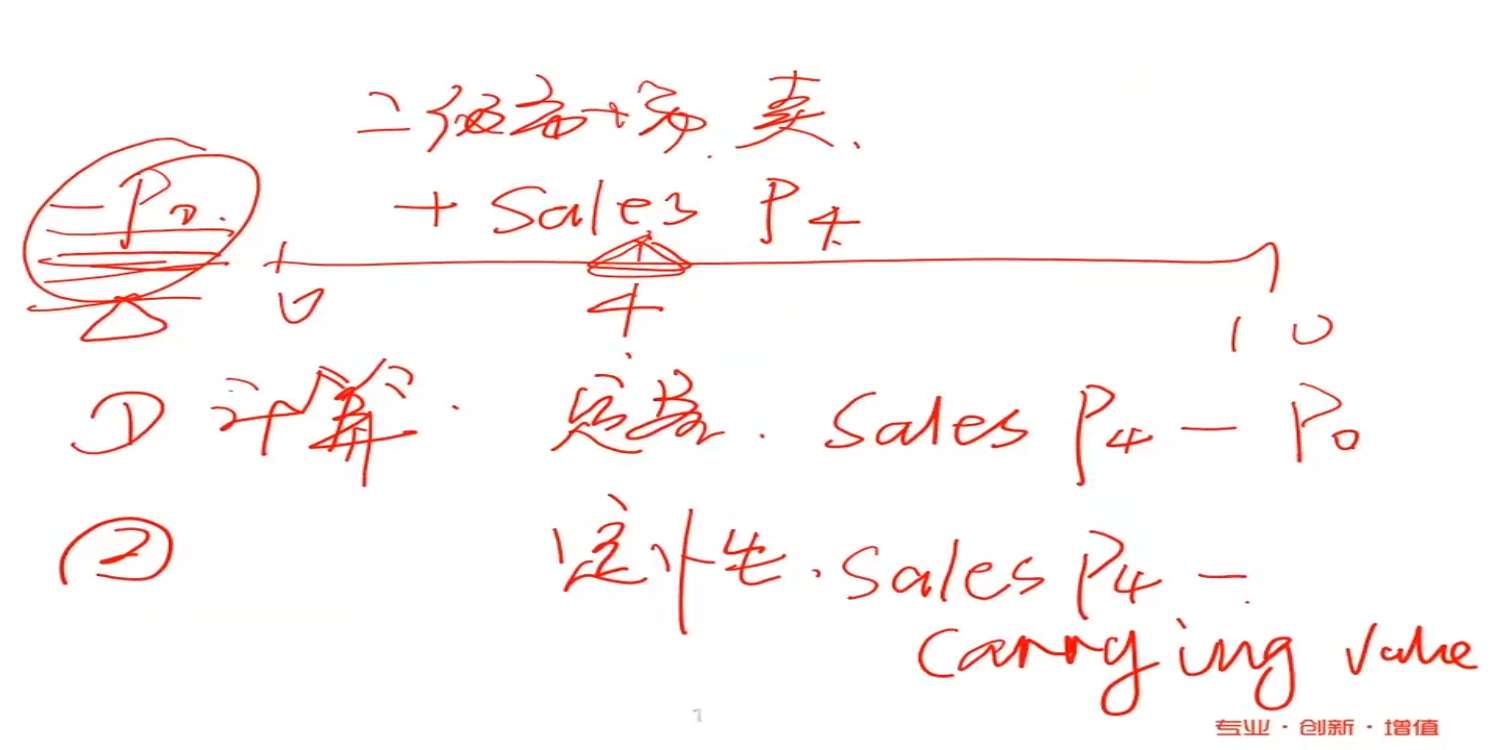 二级市场.卖.
-P0.
+ Sales P4
0 4 10
① 计算. 定量. Sales P4 - P0
② 定性. Sales P4 -
Carrying Value
1
专业·创新·增值